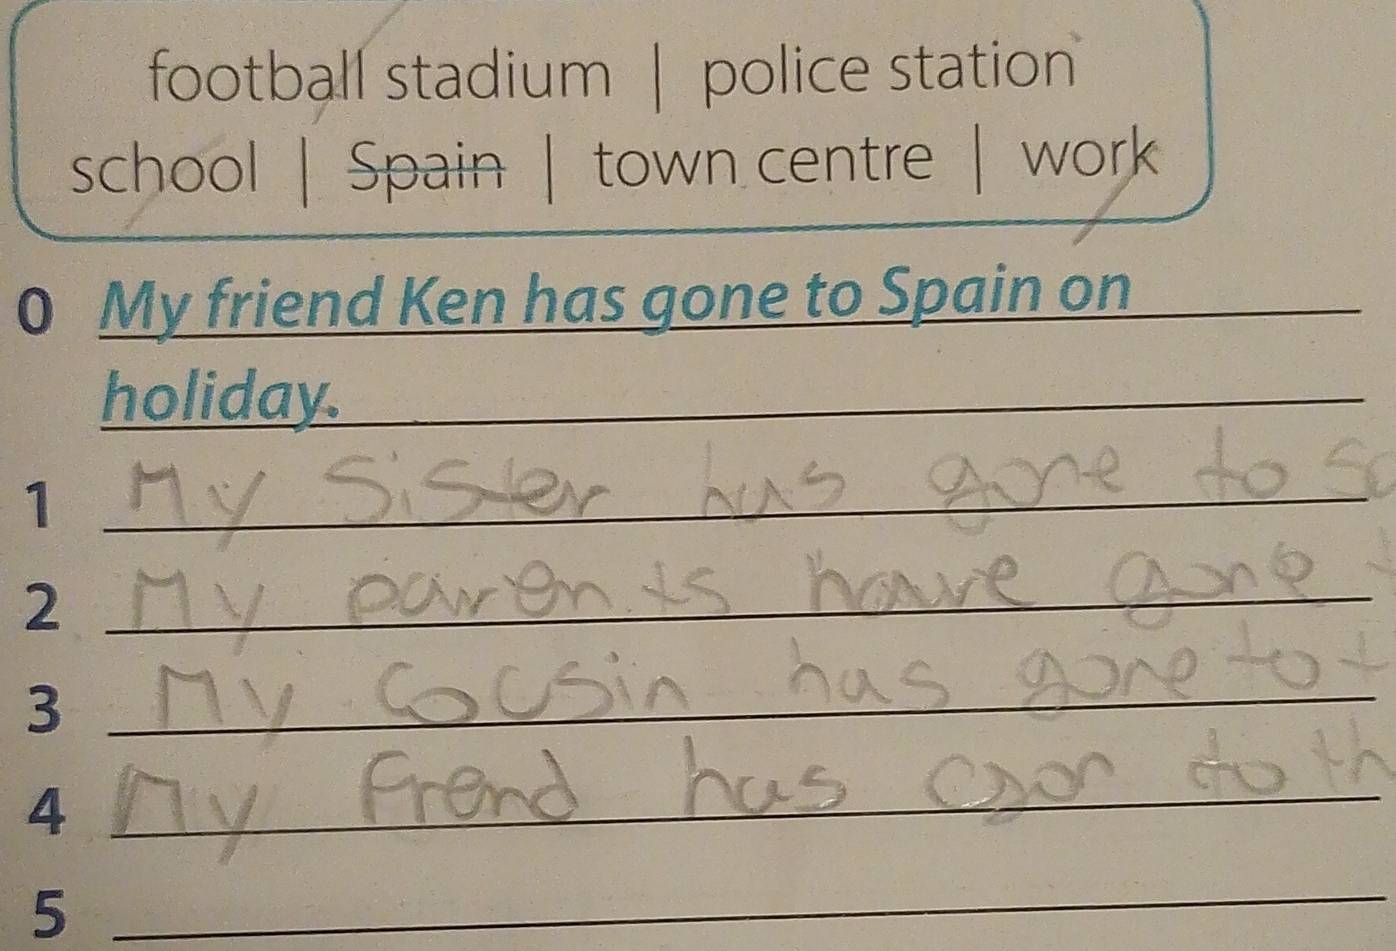 football stadium | police station
school | Spain | town centre | work
0 My friend Ken has gone to Spain on
holiday.
1 My Sister has gone to Sc
2 My parents have gone t
3 My cousin has gone to t
4 My Frend has gon to th
5